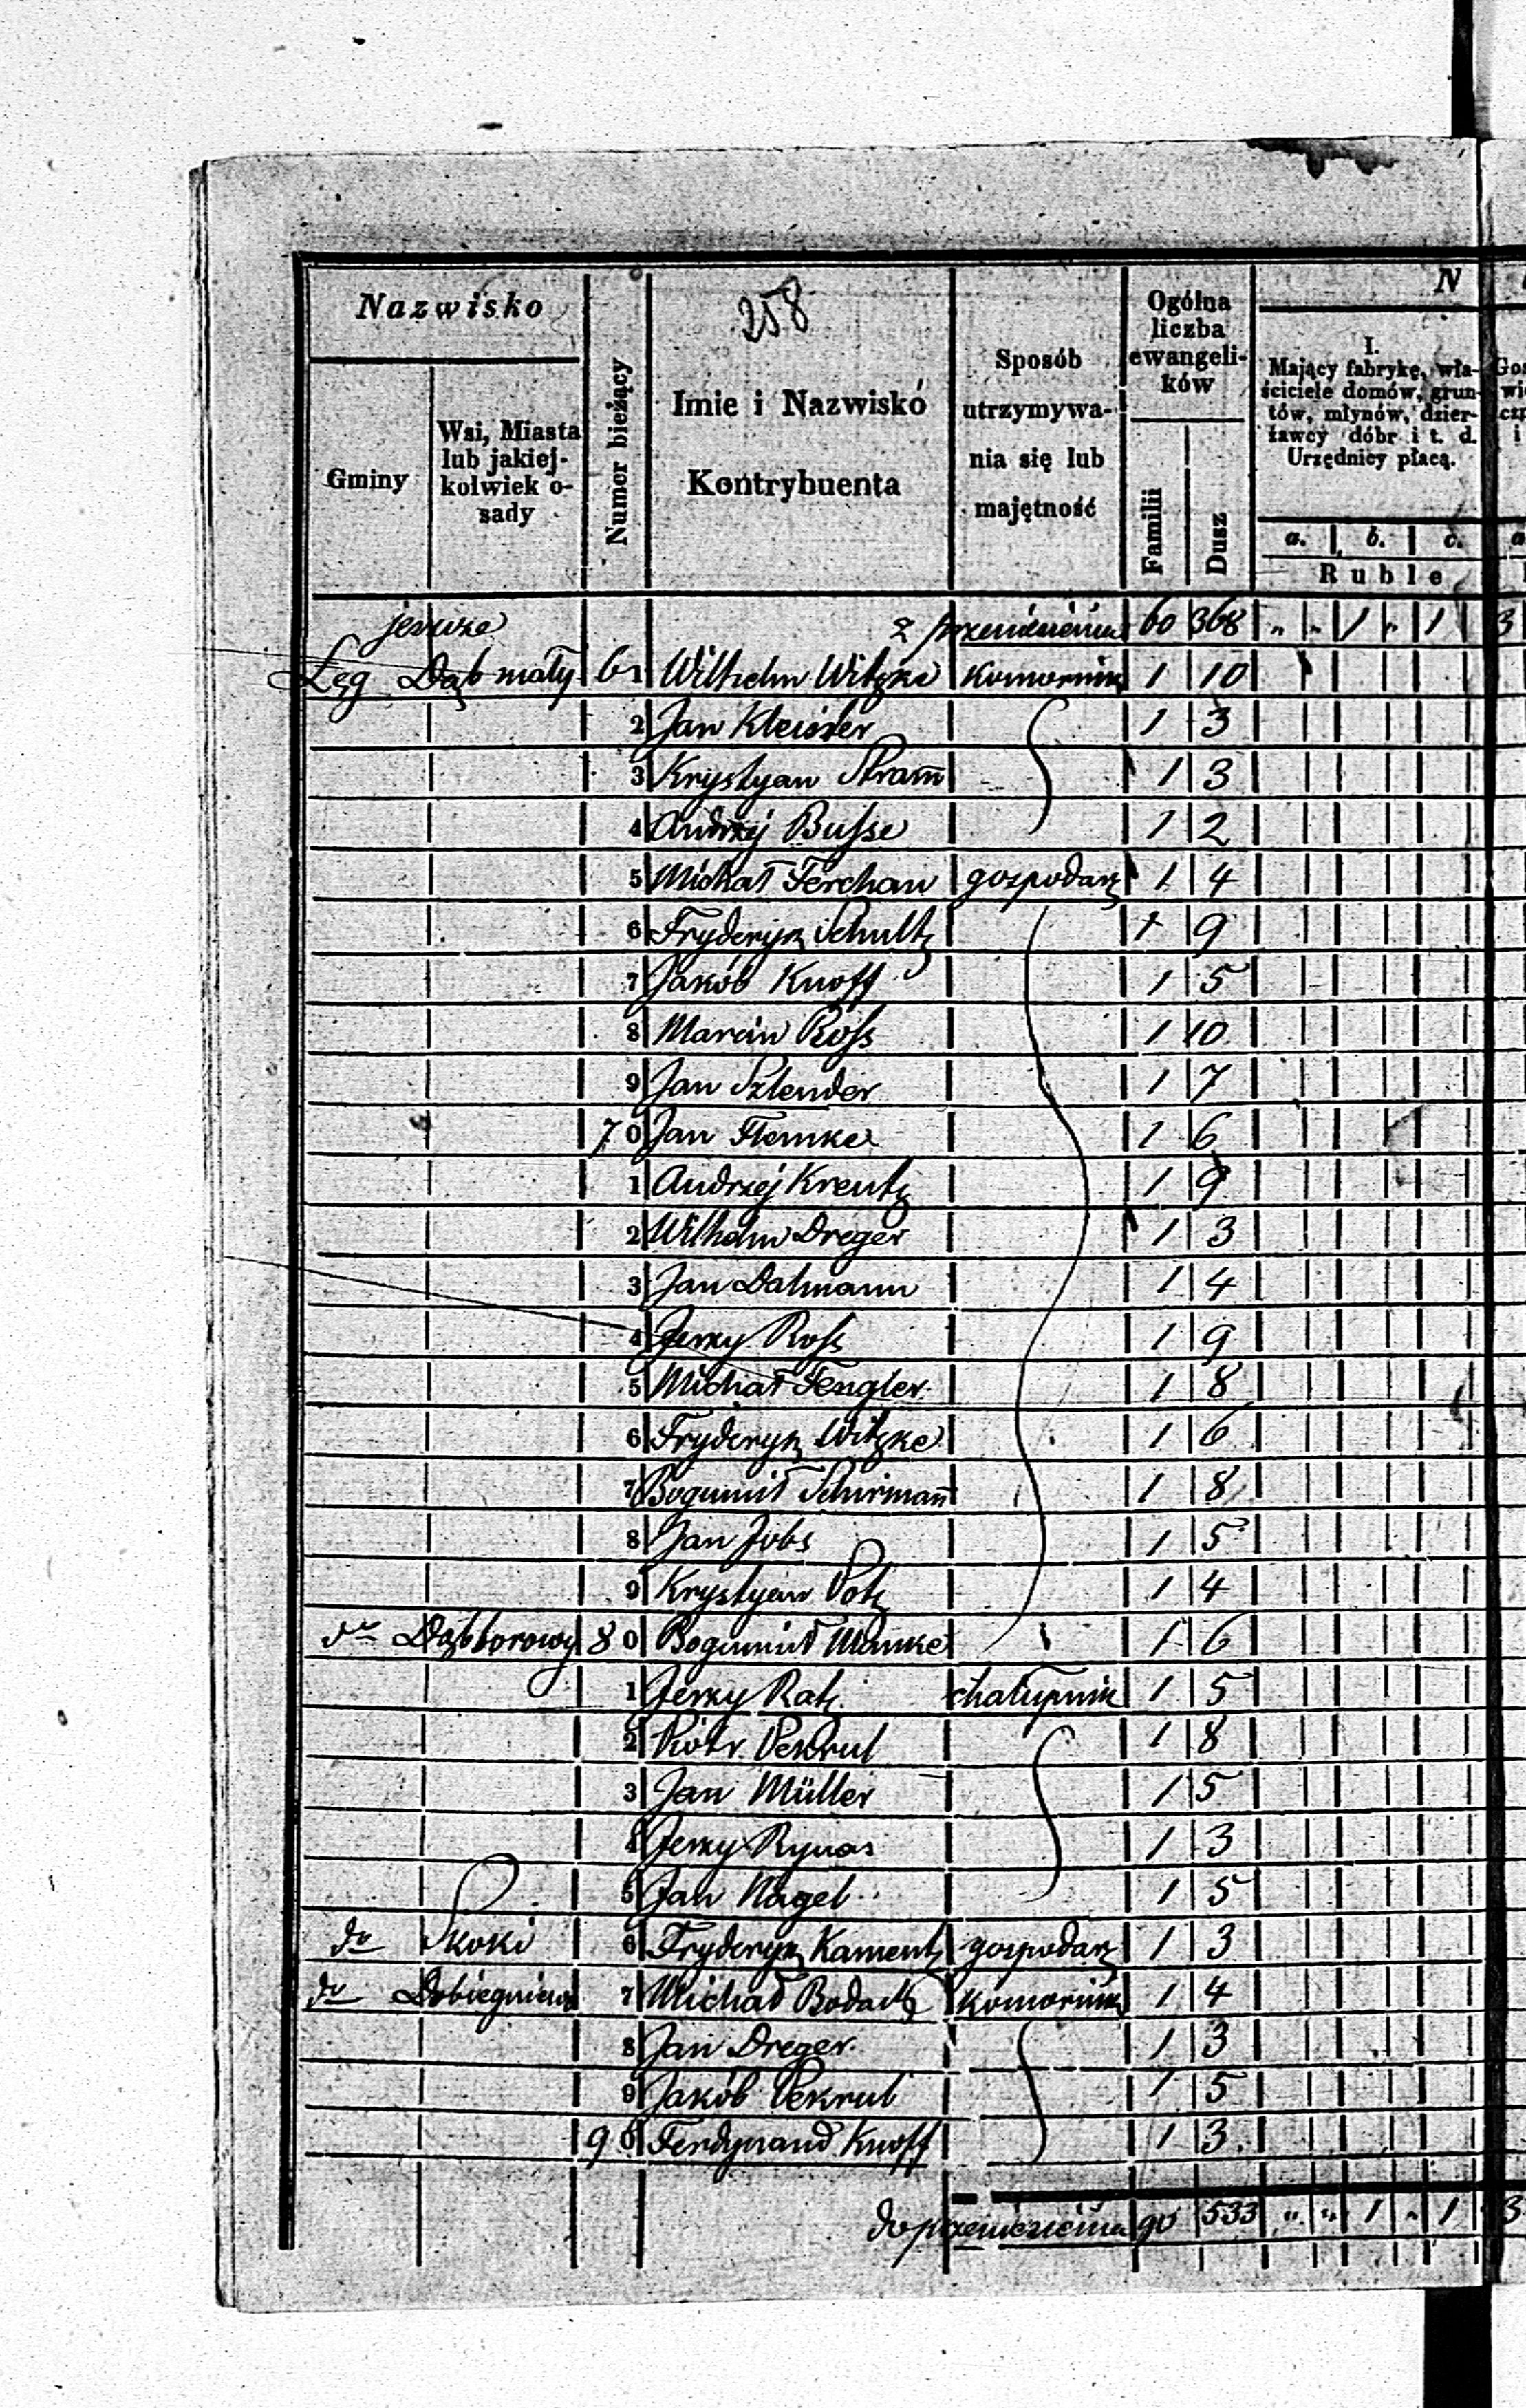 258
Nazwisko
Gminy
Wsi, Miasta lub jakiej-kolwiek o-sady
Numer bieżący
Imie i Nazwisko
Kontrybuenta
Sposób utrzymywa-nia się lub majętność
Ogólna liczba ewangeli-ków
Familii
Dusz
N
I.
Mający fabrykę, wła-
ściciele domów, grun-
tów, młynów, dzier-
żawcy dóbr i t. d.
Urzędnicy płacą.
a. b. c.
Ruble
jeszcze z przeniesienia 60 368 „ „ 1 „ 1 3
Łęg Dąb mały 61 Wilhelm Witzke Komornik 1 10
2 Jan Kleister 1 3
3 Krystyan Stram̅ 1 3
4 Andrzej Busse 1 2
5 Michał Ferchau gospodarz 1 4
6 Fryderyk Schultz 1 9
7 Jakób Knoff 1 5
8 Marcin Ross 1 10
9 Jan Szlender 1 7
70 Jan Flemke 1 6
1 Andrzej Kreutz 1 9
2 Wilhelm Dreger 1 3
3 Jan Dalmann 1 4
4 Jerzy Ross 1 9
5 Michał Fengler 1 8
6 Fryderyk Witzke 1 6
7 Bogumił Schirman̅ 1 8
8 Jan Jobs 1 5
9 Krystyan Potz 1 4
do Dąb borowy 80 Bogumił Manke 1 6
1 Jerzy Ratz chałupnik 1 5
2 Piotr Pekrul 1 8
3 Jan Müller 1 5
4 Jerzy Rynas 1 3
5 Jan Nagel 1 5
do Skoki 6 Fryderyk Kamentz gospodarz 1 3
do Dobiegniewo 7 Michał Komornik 1 4
8 Jan Dreger 1 3
9 Jakób Pekrul 1 5
90 Ferdynand Knoff 1 3
do przeniesienia 90 533 „ „ 1 „ 1 3